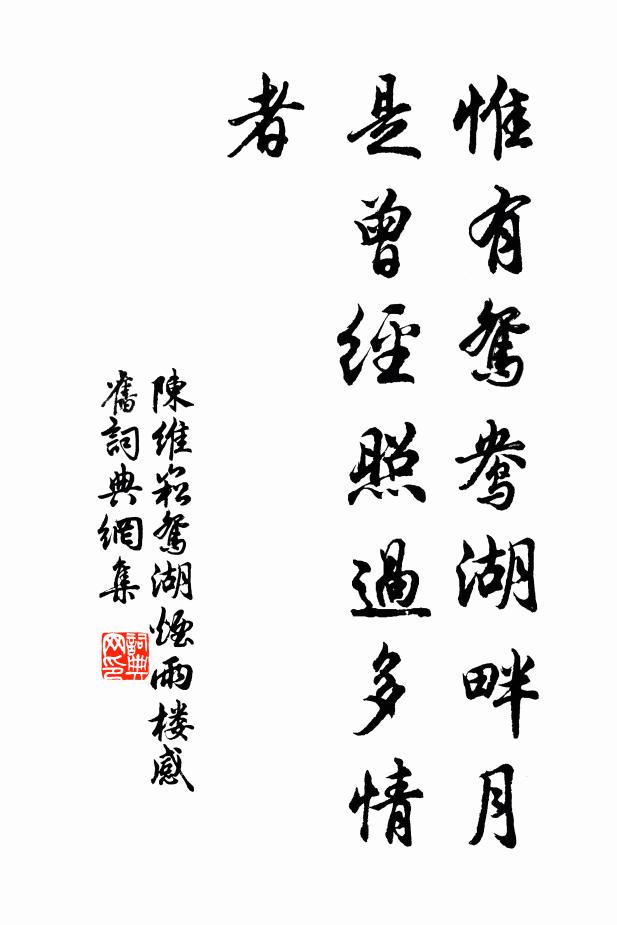 惟有鴛鴦湖畔月
是曾經照過多情
者
陳維崧鴛湖煙雨樓感
舊詞典網集
詞典网印